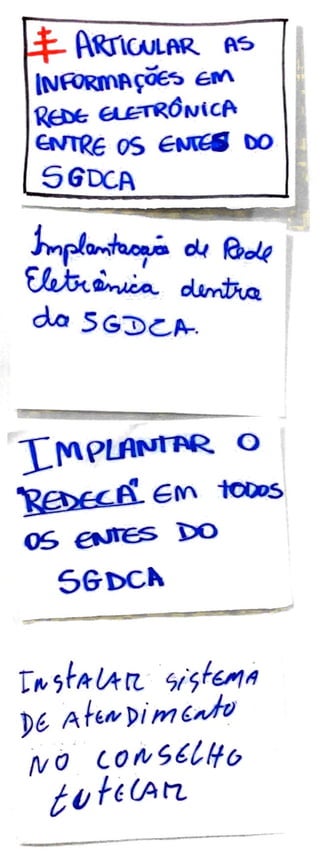 ARTICULAR AS
INFORMAÇÕES EM
REDE ELETRÔNICA
ENTRE OS ENTES DO
SGDCA
Implantação de Rede
Eletrônica dentro
do SGDCA.
IMPLANTAR O
"REDECA" EM TODOS
OS ENTES DO
SGDCA
INSTALAR SISTEMA
DE ATENDIMENTO
NO CONSELHO
TUTELAR